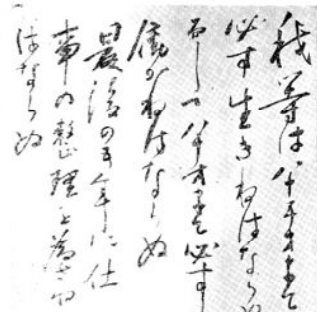 我等は八十五才まで
必ず生きねばならぬ
而して八十才まで必ず
働かねばならぬ
最後の五年に仕
事の整理を為さね
ばならぬ